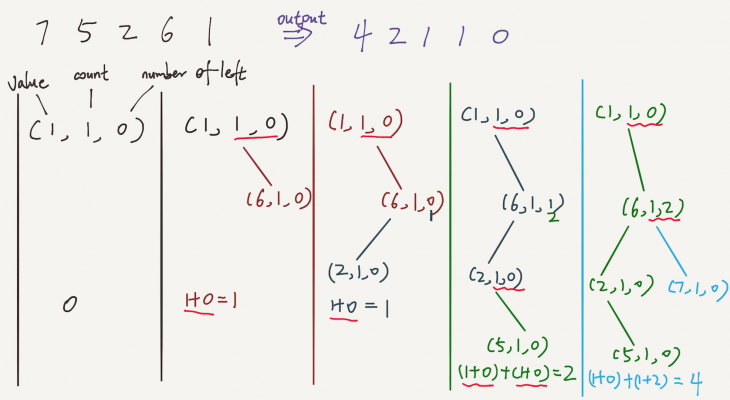 7 5 2 6 1 output ⇒ 4 2 1 1 0
value count number of left
(1, 1, 0)
0
(1, 1, 0)
(6, 1, 0)
1+0=1
(1, 1, 0)
(6, 1, 0) 1
(2, 1, 0)
1+0=1
(1, 1, 0)
(6, 1, 1) 2
(2, 1, 0)
(5, 1, 0)
(1+0)+(1+0)=2
(1, 1, 0)
(6, 1, 2)
(2, 1, 0) (7, 1, 0)
(5, 1, 0)
(1+0)+(1+2)=4